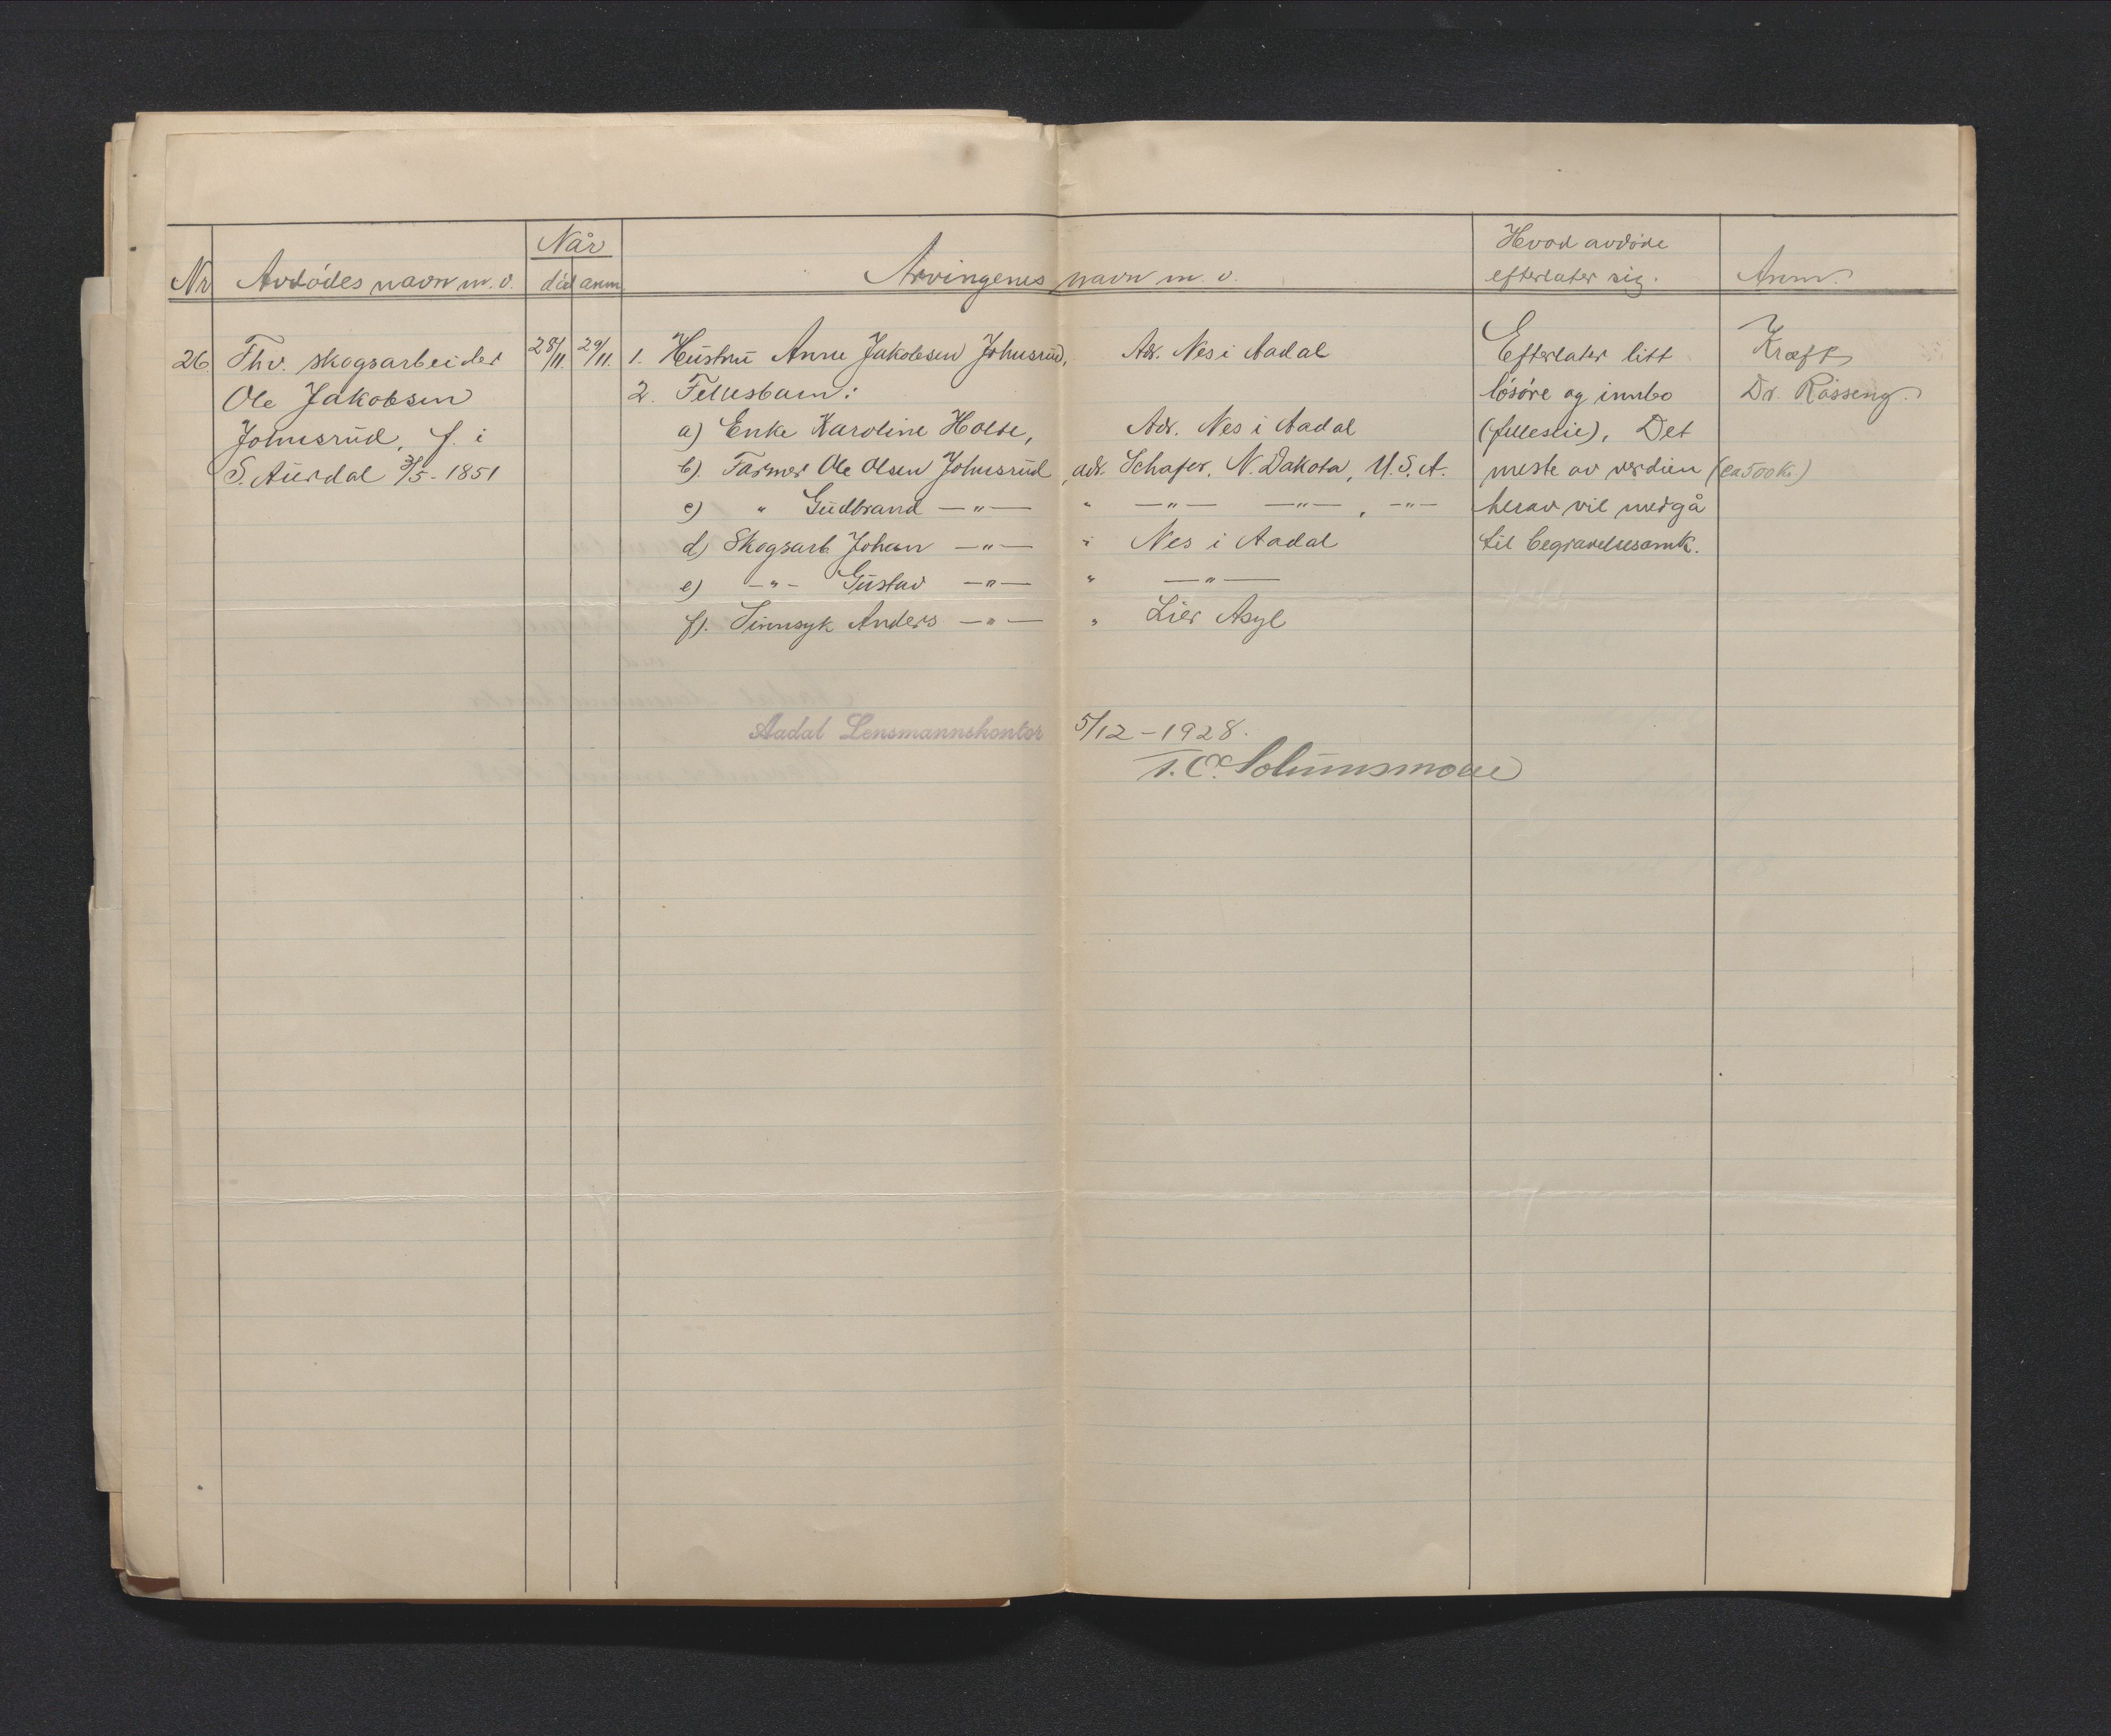 Nr Avdödes navn m.v. Når död anm. Arvingenes navn m.v. Hvad avdöde efterlater sig. Anm.
26. Thv. skogsarbeider 28/11. 29/11. 1. Hustru Anne Jakobsen Johnsrud, Adr. Nes i Aadal Efterlater litt Kreft
Ole Jakobsen 2. Fellesbarn: lösöre og innbo Dr. Rösseng.
Johnsrud, f. i a) Enke Karoline Holte, Adr. Nes i Aadal (felleseie). Det
S. Aurdal 3/5-1851 b). Farmer Ole Olsen Johnsrud, adr. Schafer, N. Dakota, U.S.A. meste av verdien (ca 500 k.)
c) " Gudbrand —"— " —"— —"—, —"— herav vil medgå
d) Skogsarb. Johan —"— " Nes i Aadal til begravelsesomk.
e) —"— Gustav —"— " —"—
f). Sinnsyk Anders —"— " Lier Asyl
Aadal Lensmannskontor 5/12-1928.